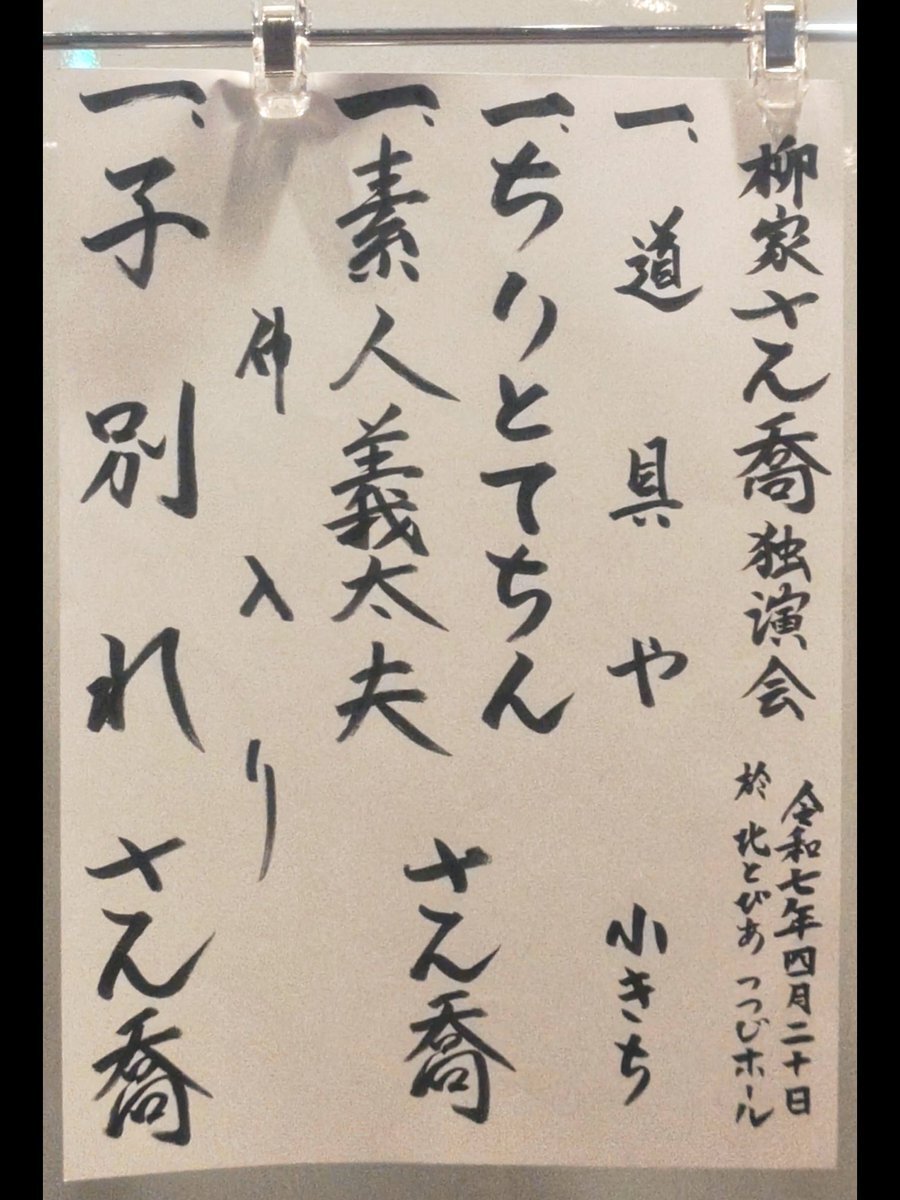 柳家さん喬独演会
令和七年四月二十日
於 北とぴあ つつじホール
一、道具や 小きち
一、ちりとてちん
一、素人義太夫 さん喬
仲入り
一、子別れ さん喬